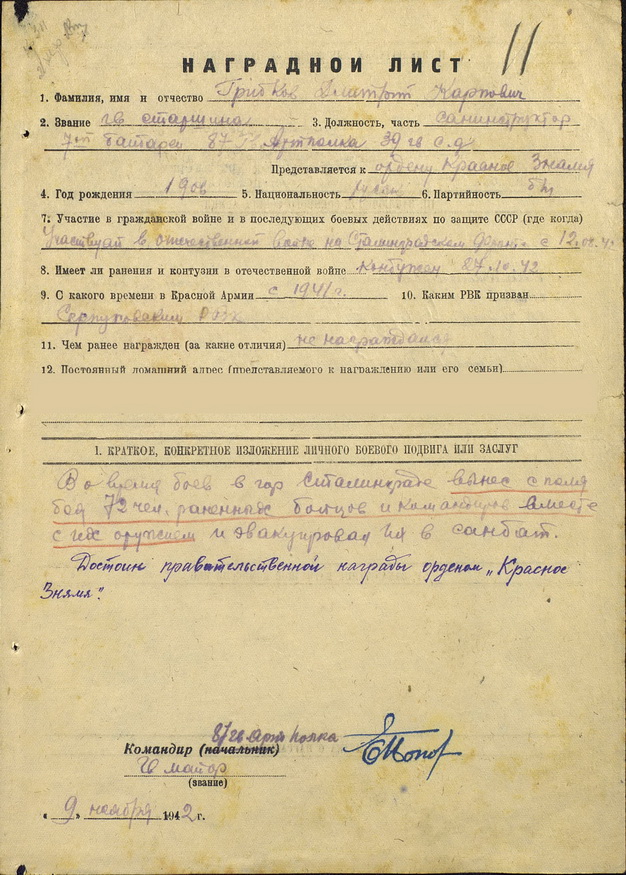 11
НАГРАДНОЙ ЛИСТ
1. Фамилия, имя и отчество Грибков Дмитрий Карпович
2. Звание гв старшина 3. Должность, часть санинструктор
7ой батареи 87 гв Артполка 39 гв с.д
Представляется к ордену Красное Знамя
4. Год рождения 1906 5. Национальность русск 6. Партийность б/п
7. Участие в гражданской войне и в последующих боевых действиях по защите СССР (где когда)
Участвует в отечественной войне на Сталинградском фронте с 12.08.42
8. Имеет ли ранения и контузии в отечественной войне Контужен 27.10.42
9. С какого времени в Красной Армии с 1941 г. 10. Каким РВК призван
Серпуховским РВК
11. Чем ранее награжден (за какие отличия) не награждался
12. Постоянный домашний адрес (представляемого к награждению или его семьи)
I. КРАТКОЕ, КОНКРЕТНОЕ ИЗЛОЖЕНИЕ ЛИЧНОГО БОЕВОГО ПОДВИГА ИЛИ ЗАСЛУГ
Во время боев в гор Сталинграде вынес с поля
боя 72 чел. раненных бойцов и командиров вместе
с их оружием и эвакуировал их в санбат.
Достоин правительственной награды орденом „Красное
Знамя".
87 гв арт полка
Командир (начальник)
гв майор
(звание)
„ 9 " ноября 1942 г.